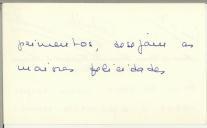 primentos, desejam as
maiores felicidades